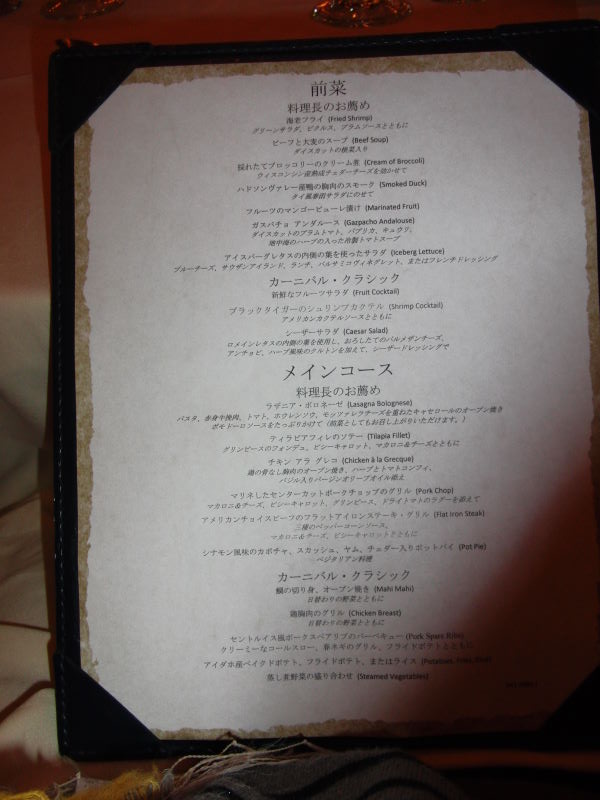 前菜
料理長のお薦め
海老フライ (Fried Shrimp)
グリーンサラダ、ピクルス、プラムソースとともに
ビーフと大麦のスープ (Beef Soup)
ダイスカットの根菜入り
採れたてブロッコリーのクリーム煮 (Cream of Broccoli)
ウィスコンシン産熟成チェダーチーズを効かせて
ハドソンヴァレー産鴨の胸肉のスモーク (Smoked Duck)
タイ風春雨サラダにのせて
フルーツのマンゴーピューレ漬け (Marinated Fruit)
ガスパチョ アンダルース (Gazpacho Andalouse)
ダイスカットのプラムトマト、パプリカ、キュウリ、
地中海のハーブの入った冷製トマトスープ
アイスバーグレタスの内側の葉を使ったサラダ (Iceberg Lettuce)
ブルーチーズ、サウザンアイランド、ランチ、バルサミコヴィネグレット、またはフレンチドレッシング
カーニバル・クラシック
新鮮なフルーツサラダ (Fruit Cocktail)
ブラックタイガーのシュリンプカクテル (Shrimp Cocktail)
アメリカンカクテルソースとともに
シーザーサラダ (Caesar Salad)
ロメインレタスの内側の葉を使用し、おろしたてのパルメザンチーズ、
アンチョビ、ハーブ風味のクルトンを加えて、シーザードレッシングで
メインコース
料理長のお薦め
ラザニア・ボロネーゼ (Lasagna Bolognese)
パスタ、赤身牛挽肉、トマト、ホウレンソウ、モッツァレラチーズを重ねたキャセロールのオーブン焼き
ポモドーロソースをたっぷりかけて (前菜としてもお召し上がりいただけます。)
ティラピアフィレのソテー (Tilapia Fillet)
グリンピースのフォンデュ、ビシーキャロット、マカロニ&チーズとともに
チキン アラ グレコ (Chicken à la Grecque)
鶏の骨なし胸肉のオーブン焼き、ハーブとトマトコンフィ、
バジル入りバージンオリーブオイル添え
マリネしたセンターカットポークチョップのグリル (Pork Chop)
マカロニ&チーズ、ビシーキャロット、グリンピース、ドライトマトのラダーを添えて
アメリカンチョイスビーフのフラットアイロンステーキ・グリル (Flat Iron Steak)
三種のペッパーコーンソース、
マカロニ&チーズ、ビシーキャロットとともに
シナモン風味のカボチャ、スカッシュ、ヤム、チェダー入りポットパイ (Pot Pie)
ベジタリアン料理
カーニバル・クラシック
鱰の切り身、オーブン焼き (Mahi Mahi)
日替わりの野菜とともに
鶏胸肉のグリル (Chicken Breast)
日替わりの野菜とともに
セントルイス風ポークスペアリブのバーベキュー (Pork Spare Ribs)
クリーミーなコールスロー、春ネギのグリル、フライドポテトとともに
アイダホ産ベイクドポテト、フライドポテト、またはライス (Potatoes, Fries, Rice)
蒸し煮野菜の盛り合わせ (Steamed Vegetables)